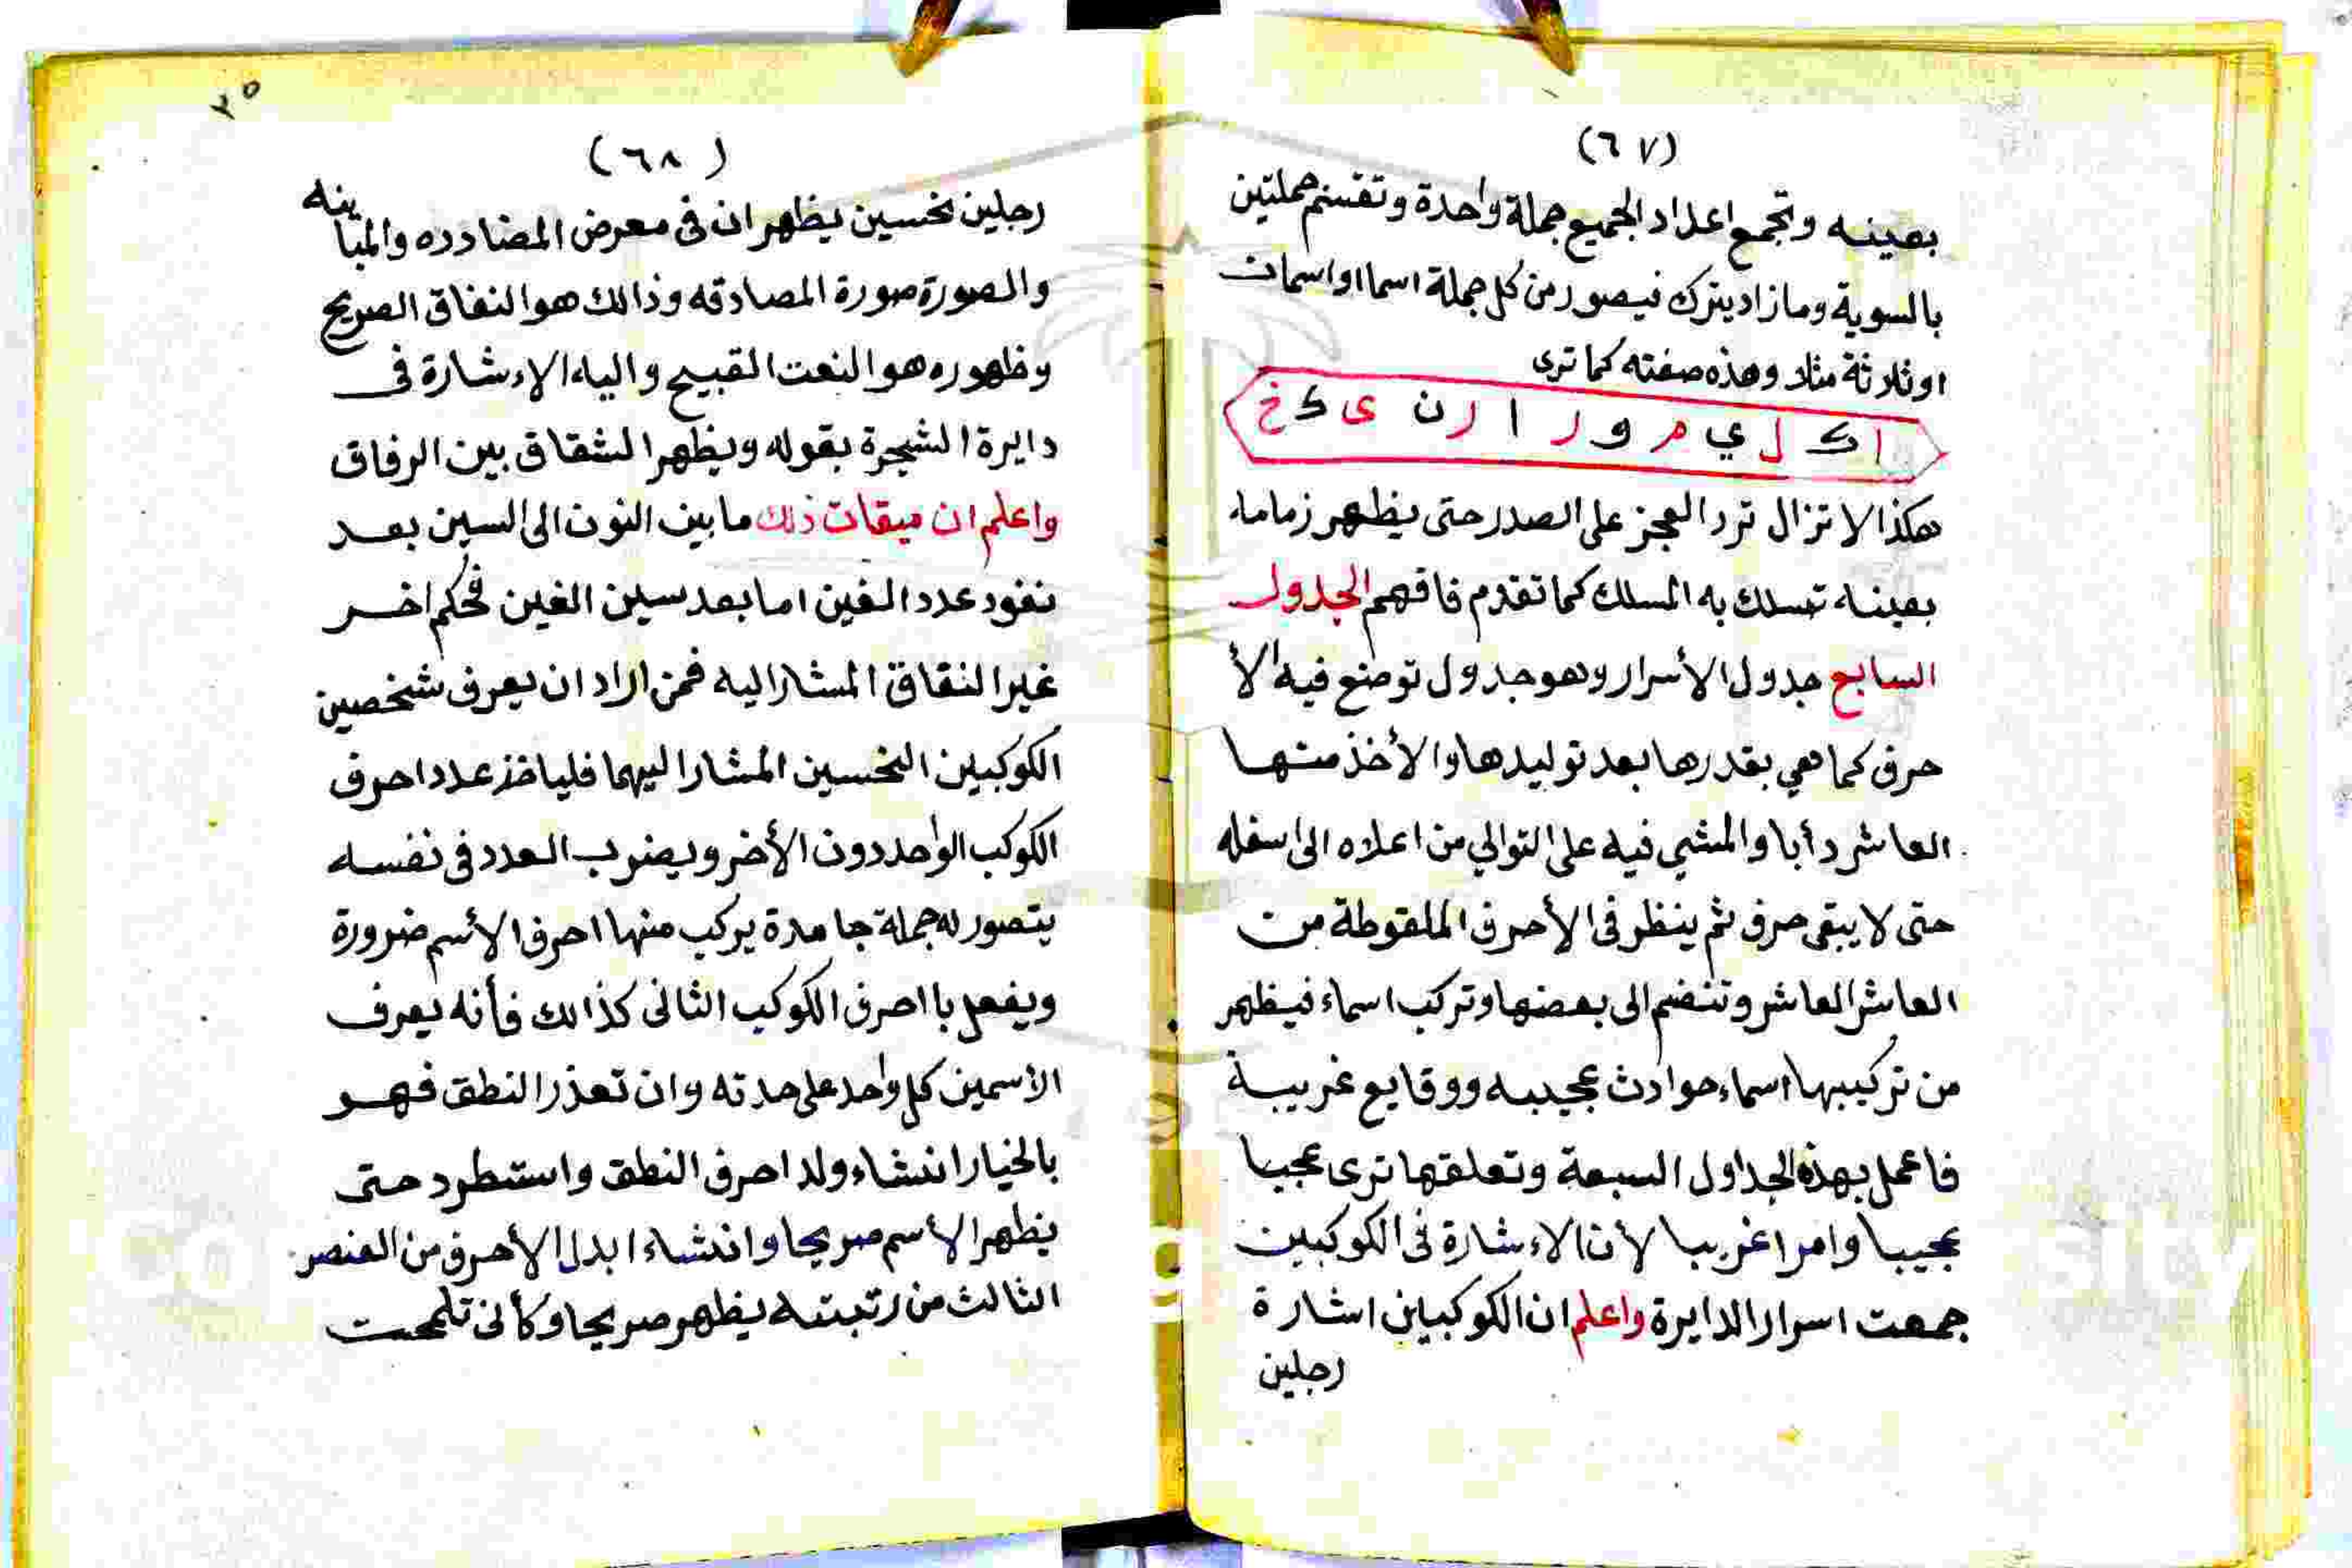 (٦٧)
بعينه وتجمع اعداد الجميع جملة واحدة وتقسم جملتين
بالسوية ومازاد يترك فيصور من كل جملة اسما او اسمان
او ثلاثة مثلا وهذه صفته كما ترى
ا ك ل ي م و ر ا ر ن ى ك خ
هكذا لا تزال ترد العجز على الصدر حتى يظهر زماما
بعينه تسلك به المسلك كما تقدم فافهم الجدول
السابع جدول الأسرار وهو جدول توضع فيه الأ
حرف كما هي بقدرها بعد توليدها والأخذ منها
العاشر دأبا والمشي فيه على التوالي من اعلاه الى اسفله
حتى لا يبقى حرف ثم ينظر فى الأحرف الملقوطة من
العاشر العاشر وتنضم الى بعضها وتركب اسماء فيظهر
من تركيبها اسماء حوادث عجيبه ووقايع غريبة
فاعمل بهذه الجداول السبعة وتعلقها ترى عجبا
عجيبا وامرا غريبا لأن الاءشارة فى الكوكبين
جمعت اسرار الدايرة واعلم ان الكوكبين اشارة
رجلين
٣٥
(٦٨)
رجلين نحسين يظهران فى معرض المضادده والمباينه
والصورة صورة المصادقه وذالك هو النفاق الصريح
وظهوره هو النعت القبيح واليه الاءشارة فى
دايرة الشجرة بقوله ويظهر الشقاق بين الرفاق
واعلم ان ميقات ذلك ما بين النون الى السين بعد
نفود عدد الغين اما بعد سين الغين فحكم اخر
غير النقاق المشار اليه فمن اراد ان يعرف شخصين
الكوكبين النحسين المشار اليهما فلياخذ عدد احرف
الكوكب الواحد دون الأخر ويضرب العدد فى نفسه
يتصور له جملة جامدة يركب منها احرف الأسم ضرورة
ويفعل با احرف الكوكب الثانى كذالك فأنه يعرف
الاسمين كل واحد على حدته وان تعذر النطق فهو
بالخيار انشاء ولد احرف النطق واستطرد حتى
يظهر الأسم صريحا وانشاء ابدل الأحرف من العنصر
الثالث من رتبته يظهر صريحا وكأنى تلمحت